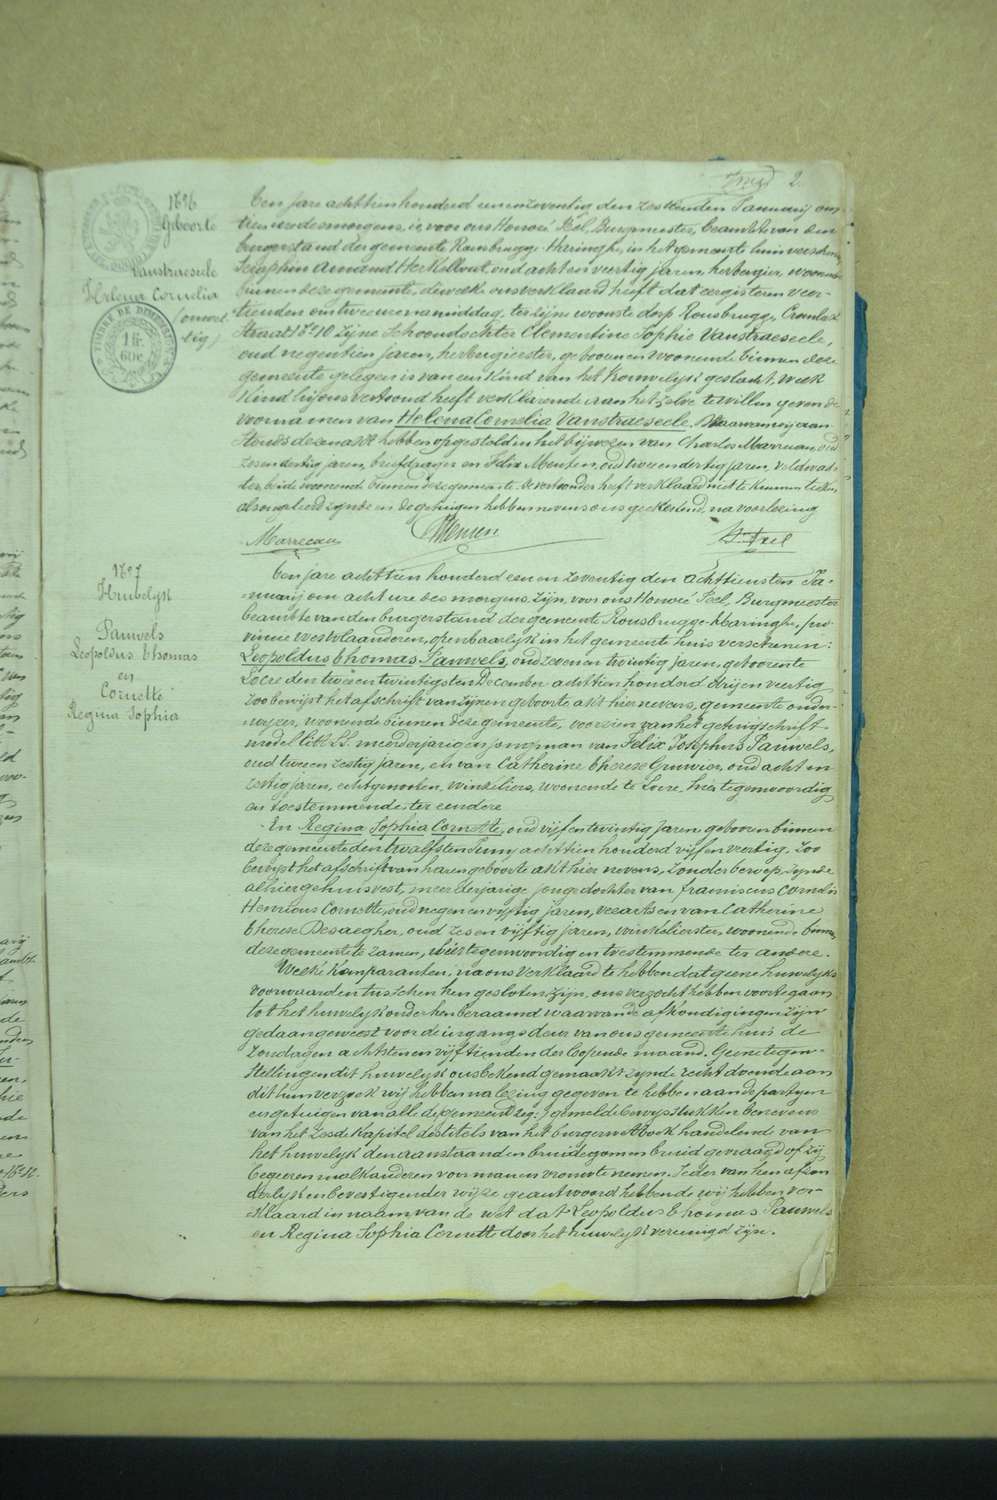 Zwed 2.
1696
Geboorte
Vanstraeseele
Helena Cornelia
TIMBRE DE DIMENSION
1 fr.
60c.
Ten jare achttienhonderd eenenzeventig den zestienden Januarij om
tien ure des morgens, is voor ons Honoré Feel, Burgmeester, beambte van den
burgerstand der gemeente Rousbrugge-Haringhe, in het gemeente huis verschenen
Seraphin Amand Herkelbout, oud acht en veertig jaren, herbergier, woonende
binnen deze gemeente, dewelke ons verklaard heeft dat eergisteren veer-
tienden om twee uren namiddag, ter zijne woonste dorp Rousbrugge, Crombeke
Straat No 10 zijne schoondochter Clementine Sophie Vanstraeseele,
oud negentien jaren, herbergierster, geboren en woonende binnen deze
gemeente gelegen is van een kind van het Vrouwelijk geslacht, welk
kind hij ons vertoond heeft verklarende aan hetzelve te willen geven de
voornamen van Helena Cornelia Vanstraeseele. Waarvan wij aan-
stonds deze nakt hebben opgesteld in het bijwezen van Charles Marrecau, oud
zesendertig jaren, briefdrager en Felix Meuten, oud twee en dertig jaren, veldwach-
ter, beide woonende binnen deze gemeente. De vertoonder heeft verklaard niet te kunnen teeken
als ongeleerd zijnde en de getuigen hebben nevens ons geteekend, na voorlezing
Marrecau
H. Feel
1697
Huwelijk
Pauwels
Leopoldus Thomas
en
Cornette
Regina Sophia
Ten jare achttien honderd een en zeventig den achttiensten Ja-
nuarij om acht ure des morgens, zijn, voor ons Honoré Feel, Burgmeester
beambte van den burgerstand der gemeente Rousbrugge-Haringhe, pro-
vincie Westvlaanderen, openbaarlijk in het gemeente huis verschenen:
Leopoldus Thomas Pauwels, oud zeven en twintig jaren, geboren te
Locre den twee en twintigsten December achttien honderd drij en veertig
zoo bewijst het afschrift van zijnen geboorte akt hier nevens, gemeente onder-
wijzer, woonende binnen deze gemeente, voorzien van het getuigschrift
model litt. LL. meerderjarigen jongman van Felix Josephus Pauwels,
oud twee en zestig jaren, en van Catherine Therese Gruwier, oud acht en
zestig jaren, echtgenooten, winkeliers, woonende te Locre, hier tegenwoordig
en toestemmende, ter eendere
En Regina Sophia Cornette, oud vijf en twintig jaren, geboren binnen
deze gemeente den twalfsten Junij achttien honderd vijf en veertig, zoo
bewijst het afschrift van haren geboorte akt hier nevens, zonder beroep, zynde
alhier gehuisvest, meerderjarige jonge dochter van Franciscus Cornelis
Henricus Cornette, oud negen en vijftig jaren, veearts en van Catherine
Therese Desaegher, oud zes en vijftig jaren, winkelierster, woonende binnen
deze gemeente te zamen, hier tegenwoordig en toestemmende ter andere.
Welke komparanten, na ons verklaard te hebben dat geene huwelijks
voorwaarden tusschen hen gesloten zijn, ons verzocht hebben voorts te gaan
tot het huwelijk onder hen beraamd waar van de afkondigingen zijn
gedaan geweest voor de ingangs deur van ons gemeente huis de
zondagen achtsten en vijftienden der loopende maand. Geene tegen-
stellingen dit huwelijk ons bekend gemaakt zynde recht doende aan
dit hun verzoek wij hebben na lezing gegeven te hebben aan de partyen
en getuigen van alle de gemeende hier gemelde bewysstukken benevens
van het zesde kapitel des titels van het burger wetboek handelend van
het huwelijk den aanstaanden bruidegom en bruid gevraagd of zij
begeeren malkanderen voor man en vrouw te nemen. Ieder van hen afzon
derlyk en bevestigender wijze geantwoord hebbende wij hebben ver-
klaard in naam van de wet dat Leopoldus Thomas Pauwels
en Regina Sophia Cornette door het huwelyk vereenigd zijn.